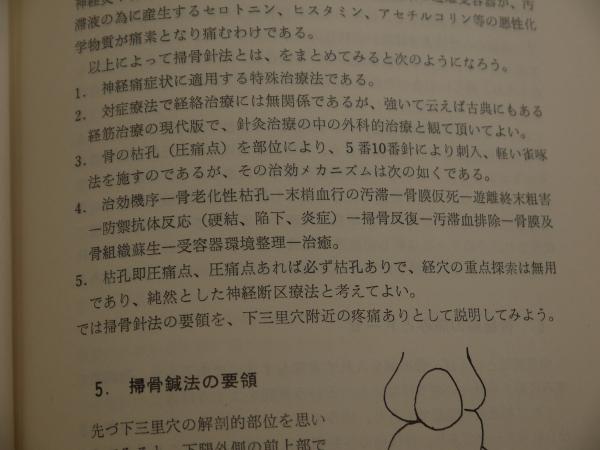 滞液の為に産生するセロトニン、ヒスタミン、アセチルコリン等の悪性化
学物質が痛素となり痛むわけである。
以上によって掃骨針法とは、をまとめてみると次のようになろう。
1. 神経痛症状に適用する特殊治療法である。
2. 対症療法で経絡治療には無関係であるが、強いて云えば古典にもある
経筋治療の現代版で、針灸治療の中の外科的治療と観て頂いてよい。
3. 骨の枯孔（圧痛点）を部位により、5番10番針により刺入、軽い雀啄
法を施すのであるが、その治効メカニズムは次の如くである。
4. 治効機序―骨老化性枯孔―末梢血行の汚滞―骨膜仮死―遊離終末粗害
―防禦抗体反応（硬結、陥下、炎症）―掃骨反復―汚滞血排除―骨膜及
骨組織蘇生―受容器環境整理―治癒。
5. 枯孔即圧痛点、圧痛点あれば必ず枯孔ありで、経穴の重点探索は無用
であり、純然とした神経断区療法と考えてよい。
では掃骨針法の要領を、下三里穴附近の疼痛ありとして説明してみよう。
5. 掃骨鍼法の要領
先づ下三里穴の解剖的部位を思い
下腿外側の前上部で